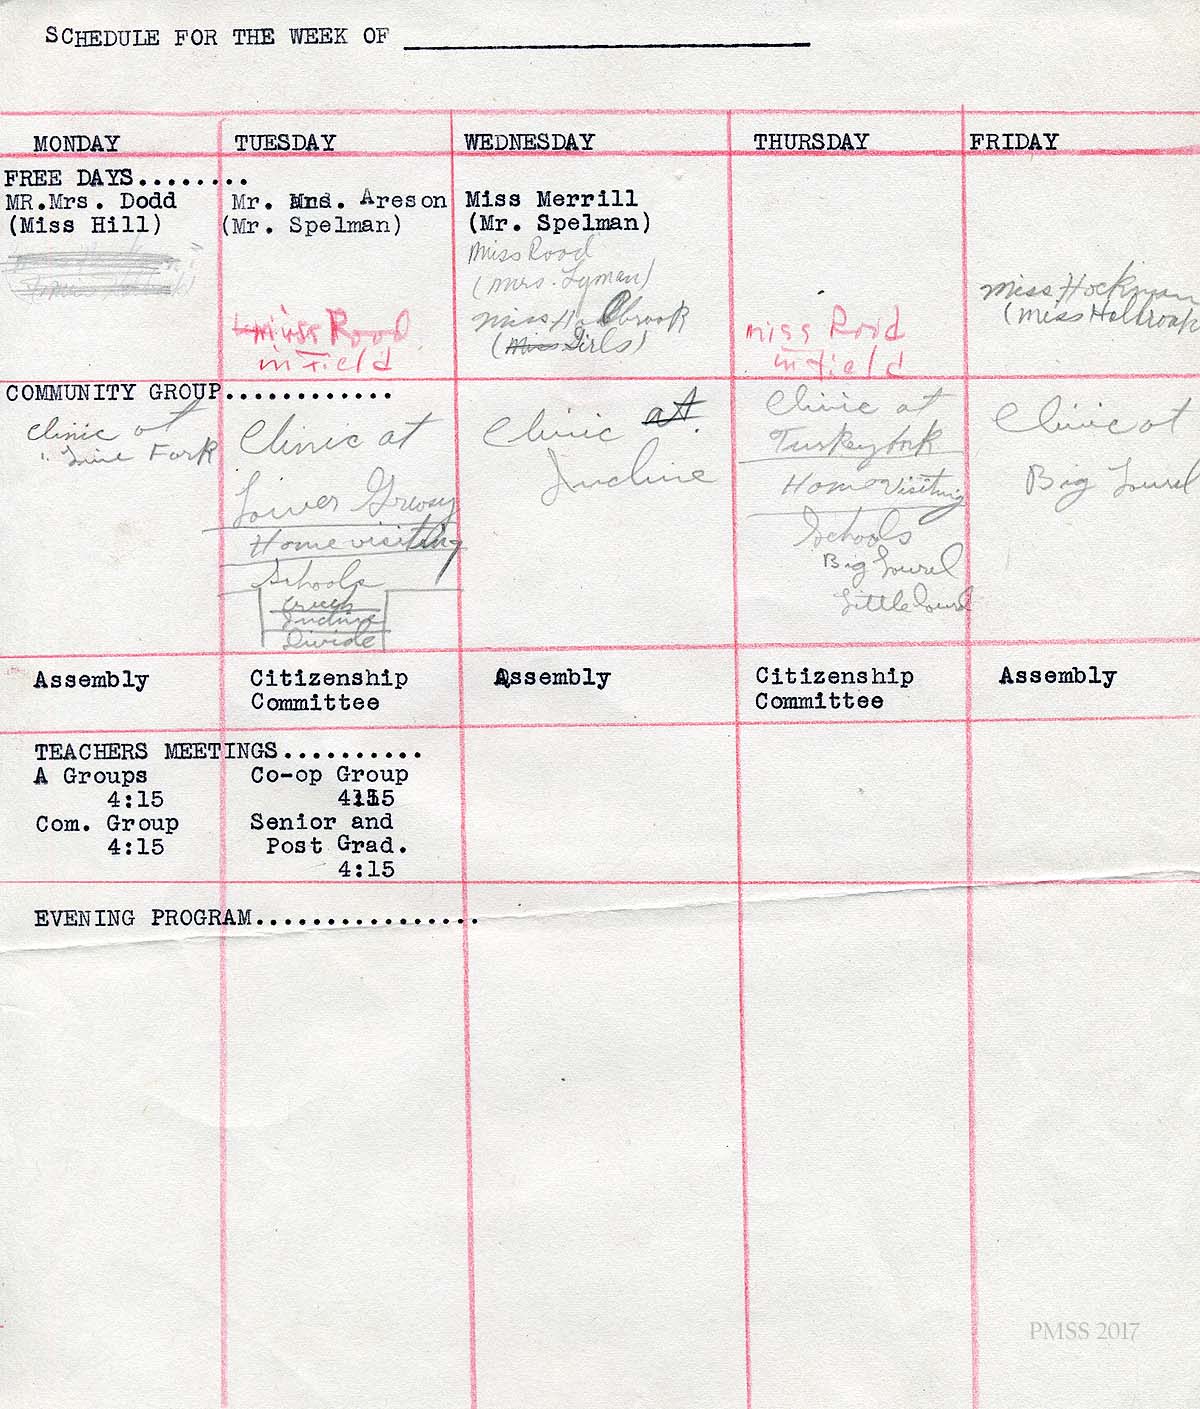 SCHEDULE FOR THE WEEK OF
MONDAY TUESDAY WEDNESDAY THURSDAY FRIDAY
FREE DAYS........
MR.Mrs. Dodd
(Miss Hill)
Mr. Mrs. Areson
(Mr. Spelman)
Miss Rood
in Field
Miss Merrill
(Mr. Spelman)
Miss Rood
(Mrs. Lyman)
Miss Holbrook
(Miss Girls)
miss Rood
in Field
Miss Hockman
(Miss Holbrook
COMMUNITY GROUP............
Clinic at
" Line Fork
Clinic at
Lower Greasy
Home visiting
Schools
Creech
Incline
Divide
Clinic at
Incline
Clinic at
Turkey fork
Home Visiting
Schools
Big Laurel
Little Laurel
Clinic at
Big Laurel
Assembly
Citizenship
Committee
Assembly
Citizenship
Committee
Assembly
TEACHERS MEETINGS..........
A Groups
4:15
Com. Group
4:15
Co-op Group
4:15
Senior and
Post Grad.
4:15
EVENING PROGRAM................
PMSS 2017